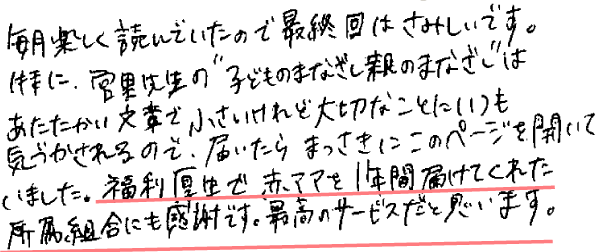 毎月楽しく読んでいたので最終回はさみしいです。
特に、宮里先生の"子どものまなざし親のまなざし"は
あたたかい文章で小さいけれど大切なことにいつも
気づかされるので、届いたらまっさきにこのページを開いて
いました。福利厚生で赤ママを1年間届けてくれた
所属組合にも感謝です。最高のサービスだと思います。